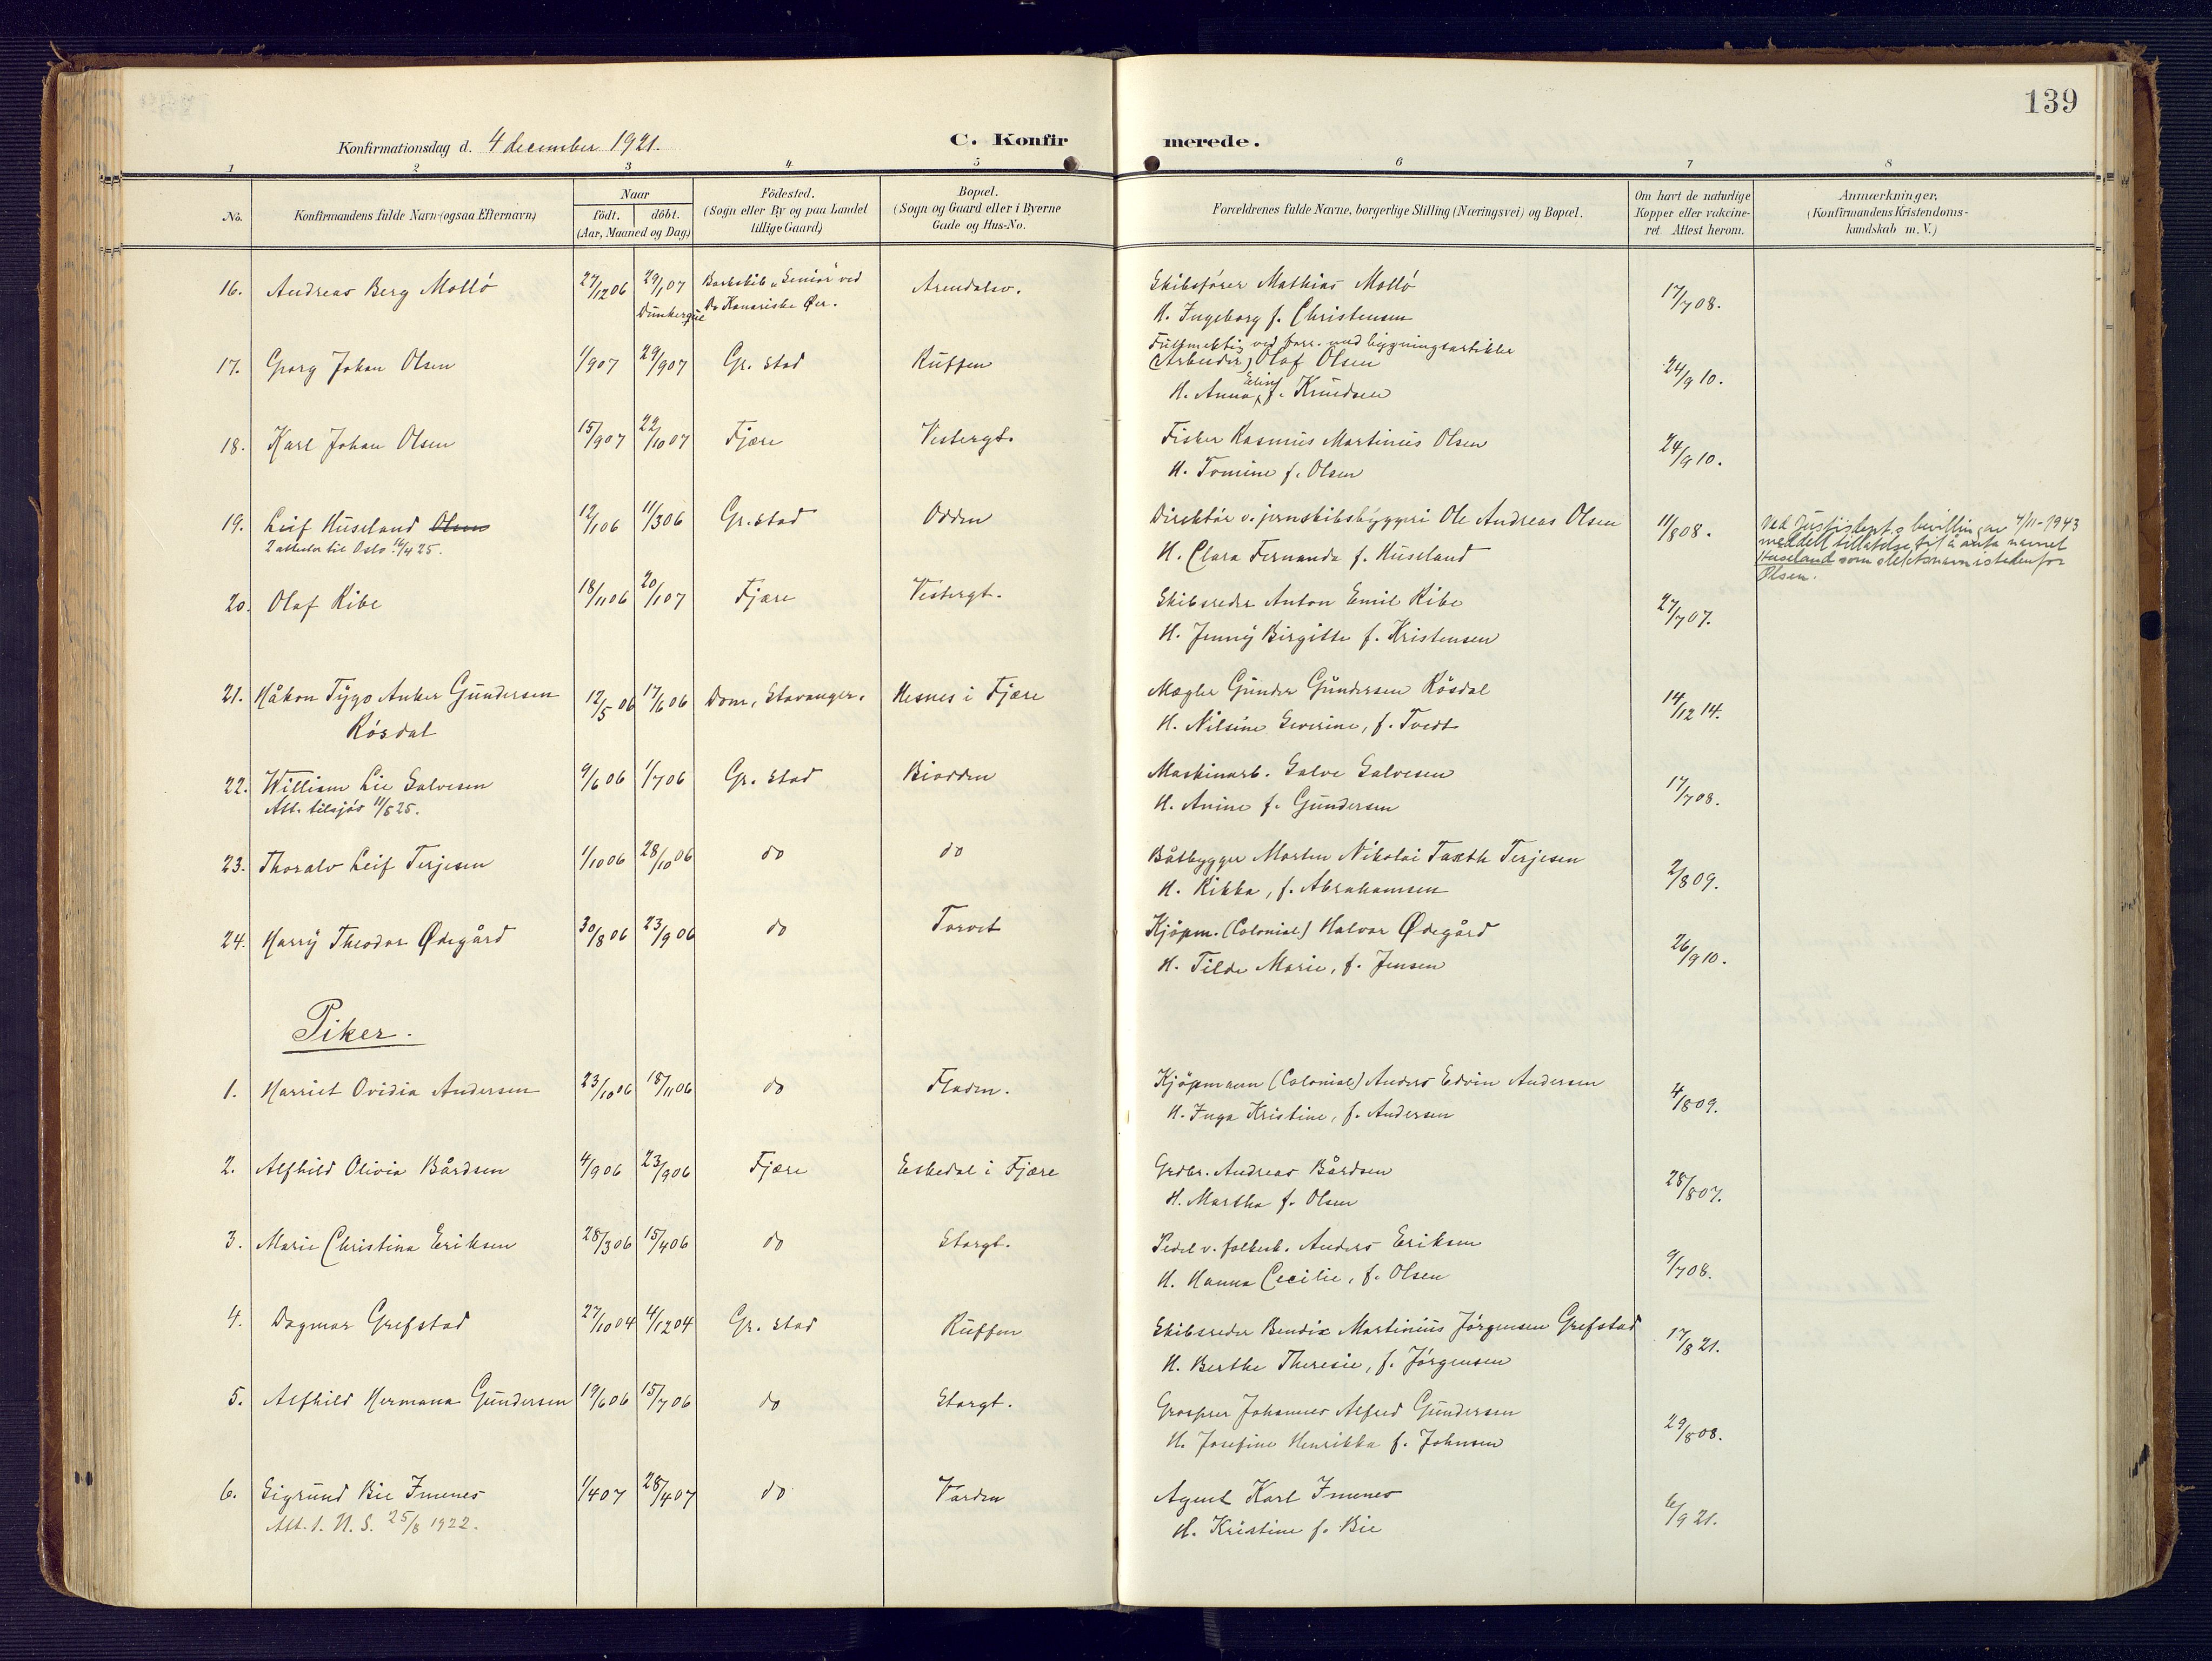 139
Konfirmationsdag d. 4 december 1921.
C. Konfirmerede.
1 2 3 4 5 6 7 8
No.
Konfirmandens fulde Navn (ogsaa Efternavn)
Naar
födt. döbt.
(Aar, Maaned og Dag)
Födested.
(Sogn eller By og paa Landet
tillige Gaard)
Bopæl.
(Sogn og Gaard eller i Byerne
Gade og Hus-No.
Forældrenes fulde Navne, borgerlige Stilling (Næringsvei) og Bopæl.
Om havt de naturlige
Kopper eller vakcine-
ret. Attest herom.
Anmærkninger,
(Konfirmandens Kristendoms-
kundskab m. V.)
16. Andreas Berg Mollö 27/12 06 29/1 07 Barkskib "Senior" ved Arendalsv. Skibsfører Mathias Mollö 17/7 08.
Dunkerque De Kanariske Øer.
H. Ingeborg f. Christensen
Fullmektig ved forr. med bygningsartikler
17. Georg Johan Olsen 1/9 07 29/9 07 Gr. stad Ruffen (Arbeider) Olaf Olsen 24/9 10.
H. Anna Elise f. Knudsen
18. Karl Johan Olsen 15/9 07 22/10 07 Fjære Vestergt. Fisker Rasmus Martinius Olsen 24/9 10.
H. Tomine f. Olsen
19. Leif Huseland Olsen 12/1 06 11/3 06 Gr. stad Odden Direktör v. jernskibsbyggeri Ole Andreas Olsen 11/8 08.
2 attester til Oslo 16/4 25.
H. Clara Fernanda f. Huseland
Ved Justisdept.s bevilling av 4/11-1943
meddelt tillatelse til å anta navnet
Huseland som slektsnavn istedenfor
Olsen.
20. Olaf Ribe 18/11 06 20/1 07 Fjære Vestergt. Skibsreder Anton Emil Ribe 27/7 07.
H. Jenny Birgitte f. Kristensen
21. Håkon Tygo Anker Gundersen 12/5 06 17/6 06 Dom, Stavanger. Hesnes i Fjære Mægler Gunder Gundersen Rösdal 14/12 14.
Rösdal
H. Nilsine Severine, f. Tvedt
22. William Lie Salvesen 9/6 06 1/7 06 Gr. stad Biodden Maskinarb. Salve Salvesen 17/7 08.
Att. tilsjös 11/5 25.
H. Anine f. Gundersen
23. Thoralv Leif Terjesen 1/10 06 28/10 06 do do Båtbygger Morten Nikolai Taxth Terjesen 2/8 09.
H. Rikka, f. Abrahamsen
24. Harry Theodor Ødegård 30/8 06 23/9 06 do Torvet Kjöpm. (Colonial) Halvor Ødegård 26/9 10.
H. Tilde Marie, f. Jensen
Piker.
1. Harriet Ovidia Andersen 23/10 06 18/11 06 do Fladen. Kjöpmann (Colonial) Anders Edvin Andersen 4/8 09.
H. Inga Kristine, f. Andersen
2. Alfhild Olivia Bårdsen 4/9 06 23/9 06 Fjære Eskedal i Fjære Grdbr. Andreas Bårdsen 28/8 07.
H. Martha f. Olsen
3. Marie Christina Eriksen 28/3 06 15/4 06 do Storgt. Pedel v. folkesk. Anders Eriksen 9/7 08.
H. Hanna Cecilie, f. Olsen
4. Dagmar Grefstad 27/10 04 4/12 04 Gr. stad Ruffen Skibsreder Bendix Martinius Jörgensen Grefstad 17/8 21.
H. Berthe Theresie, f. Jörgensen
5. Alfhild Hermana Gundersen 19/6 06 15/7 06 do Storgt. Grosserer Johannes Alfred Gundersen 29/8 08.
H. Josefine Henrikka f. Johnsen
6. Sigrund Bie Imenes 1/4 07 28/4 07 do Varden Agent Karl Imenes 6/9 21.
Att. t. U. S. 25/8 1922.
H. Kristine f. Bie